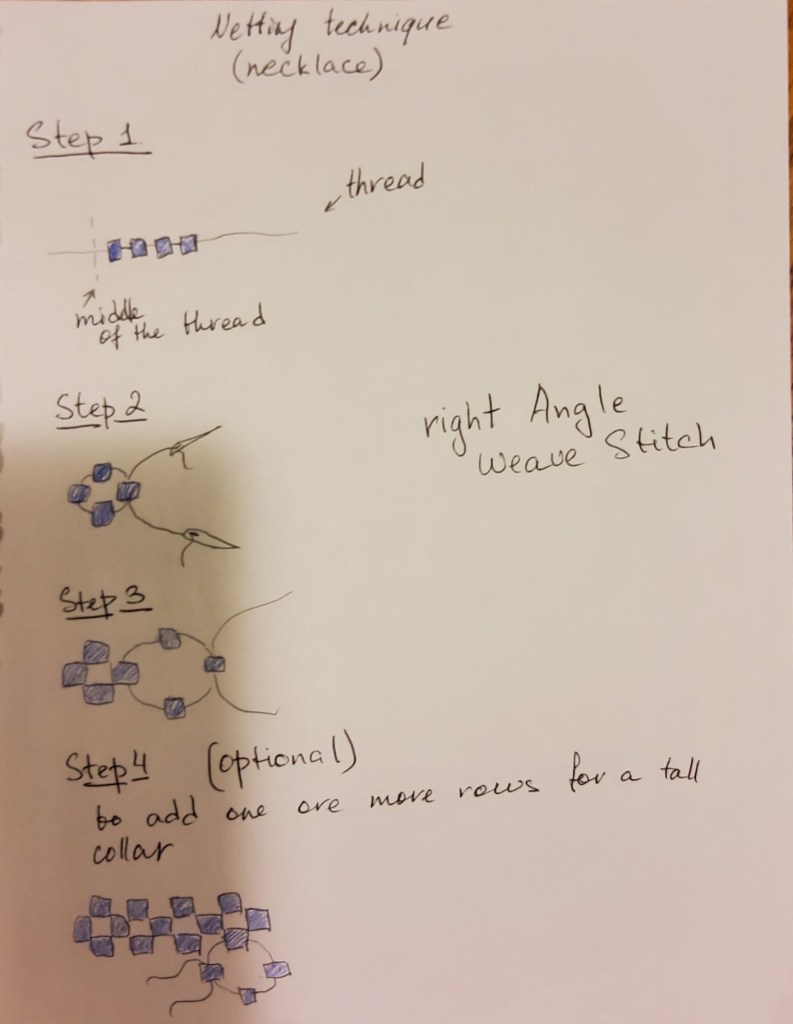 Netting technique
(necklace)
Step 1
thread
middle
of the thread
Step 2
right Angle
Weave Stitch
Step 3
Step 4 (optional)
to add one ore more rows for a tall
collar